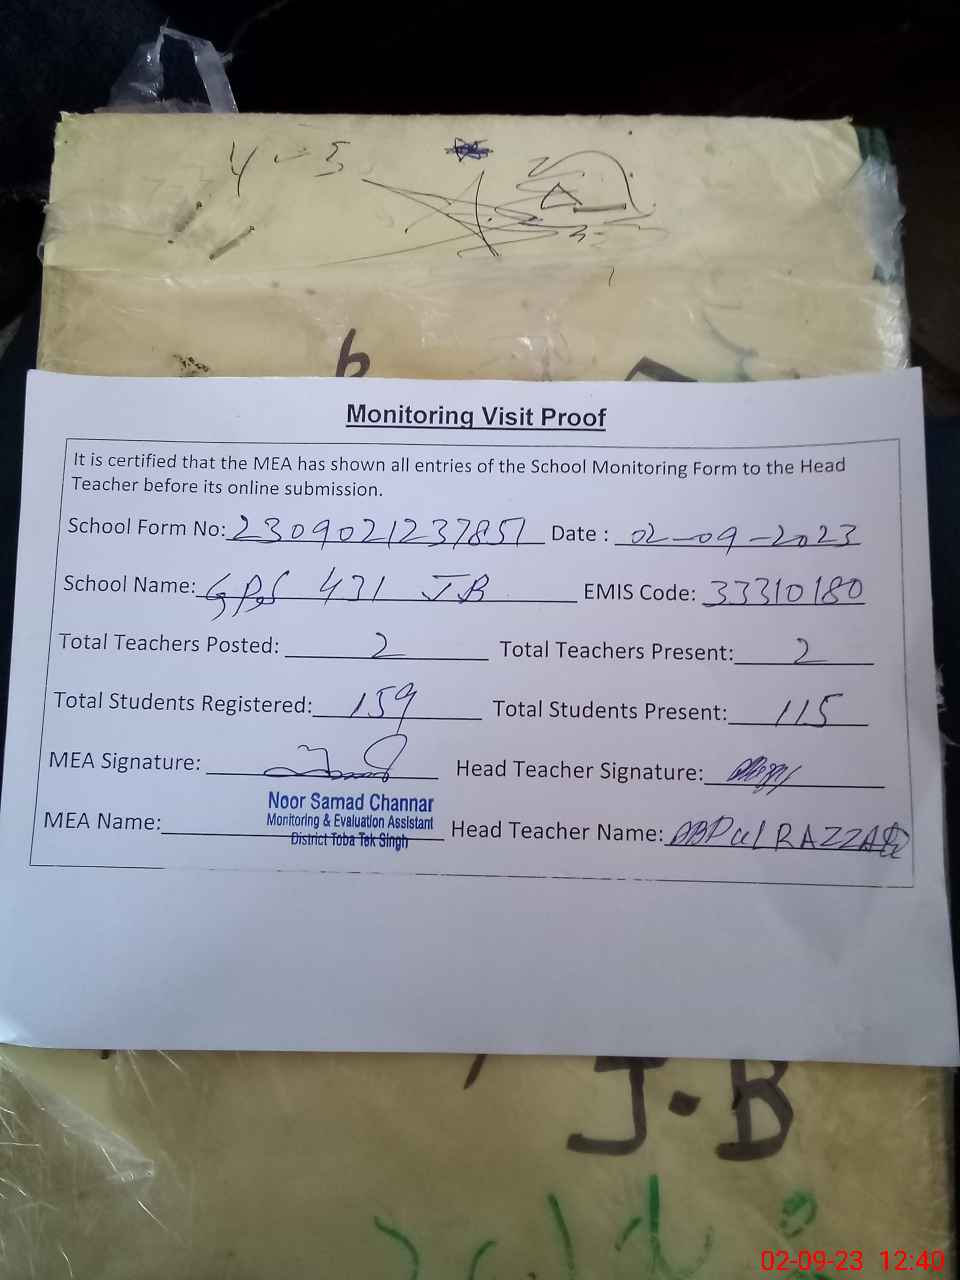 4 - 5
b
Monitoring Visit Proof
It is certified that the MEA has shown all entries of the School Monitoring Form to the Head
Teacher before its online submission.
School Form No: 2309021237851 Date : 02-09-2023
School Name: GPS 431 JB EMIS Code: 33310180
Total Teachers Posted: 2 Total Teachers Present: 2
Total Students Registered: 159 Total Students Present: 115
MEA Signature: Head Teacher Signature:
Noor Samad Channar
Monitoring & Evaluation Assistant
District Toba Tek Singh
MEA Name: Head Teacher Name: ABDul RAZZAQ
J.B
02-09-23 12:40